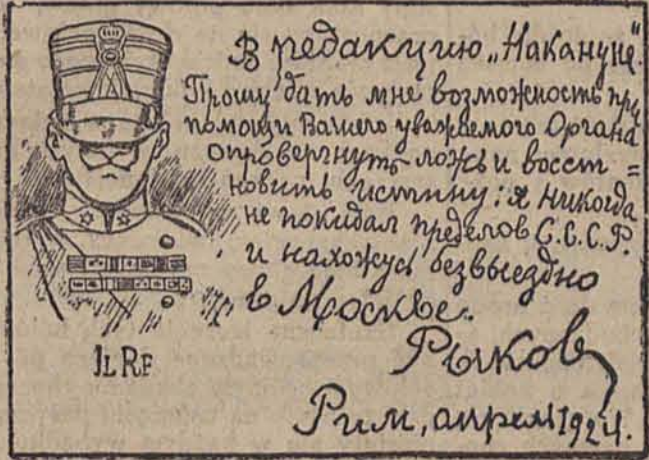 В редакцию „Накануне“.
Прошу дать мне возможность при
помощи Вашего уважаемого Органа
опровергнуть ложь и восст=
новить истину: я никогда
не покидал пределов С.С.С.Р.
и нахожусь безвыездно
в Москве.
Рыков
Рим, апрель 1924.
IL RE